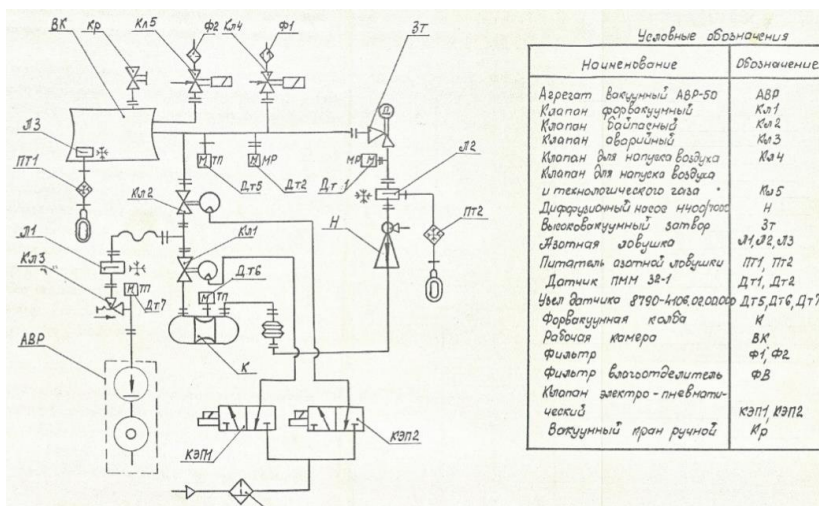 ВК
Кр
Кл5
Ф2
Кл4
Ф1
ЗТ
П
Л3
ПТ1
М ТП
Дт5
М МР
Дт2
МР М
Дт1
Л2
Кл2
Н
ПТ2
Кл1
Л1
Кл3
М ТП
Дт7
Дт6
М ТП
АВР
К
КЭП1
КЭП2
Условные обозначения
Наименование Обозначение
Агрегат вакуумный АВР-50 АВР
Клапан форвакуумный Кл1
Клапан байпасный Кл2
Клапан аварийный Кл3
Клапан для напуска воздуха Кл4
Клапан для напуска воздуха
и технологического газа Кл5
Диффузионный насос Н400/7000 Н
Высоковакуумный затвор Зт
Азотная ловушка Л1,Л2,Л3
Питатель азотной ловушки ПТ1, ПТ2
Датчик ПММ 32-1 Дт1, Дт2
Узел датчика 8790-4106.02.00.000 Дт5,Дт6,Дт7
Форвакуумная колба К
Рабочая камера ВК
Фильтр Ф1, Ф2
Фильтр влагоотделитель ФВ
Клапан электро-пневмати-
ческий КЭП1, КЭП2
Вакуумный кран ручной Кр